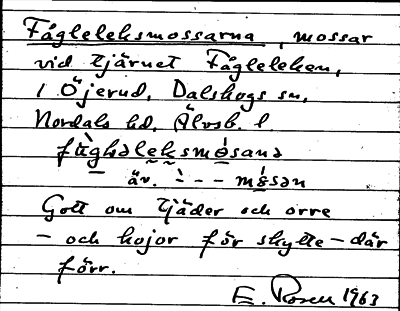 Fågleleksmossarna, mossar
vid tjärnet Fågleleken,
i Öjerud, Dalskogs sn,
Nordals hd, Älvsb. l
fùghəleksmósana
äv. ˋ - - mósən
Gott om tjäder och orre
– och kojor för skytte – där
förr.
E. Rosen 1963